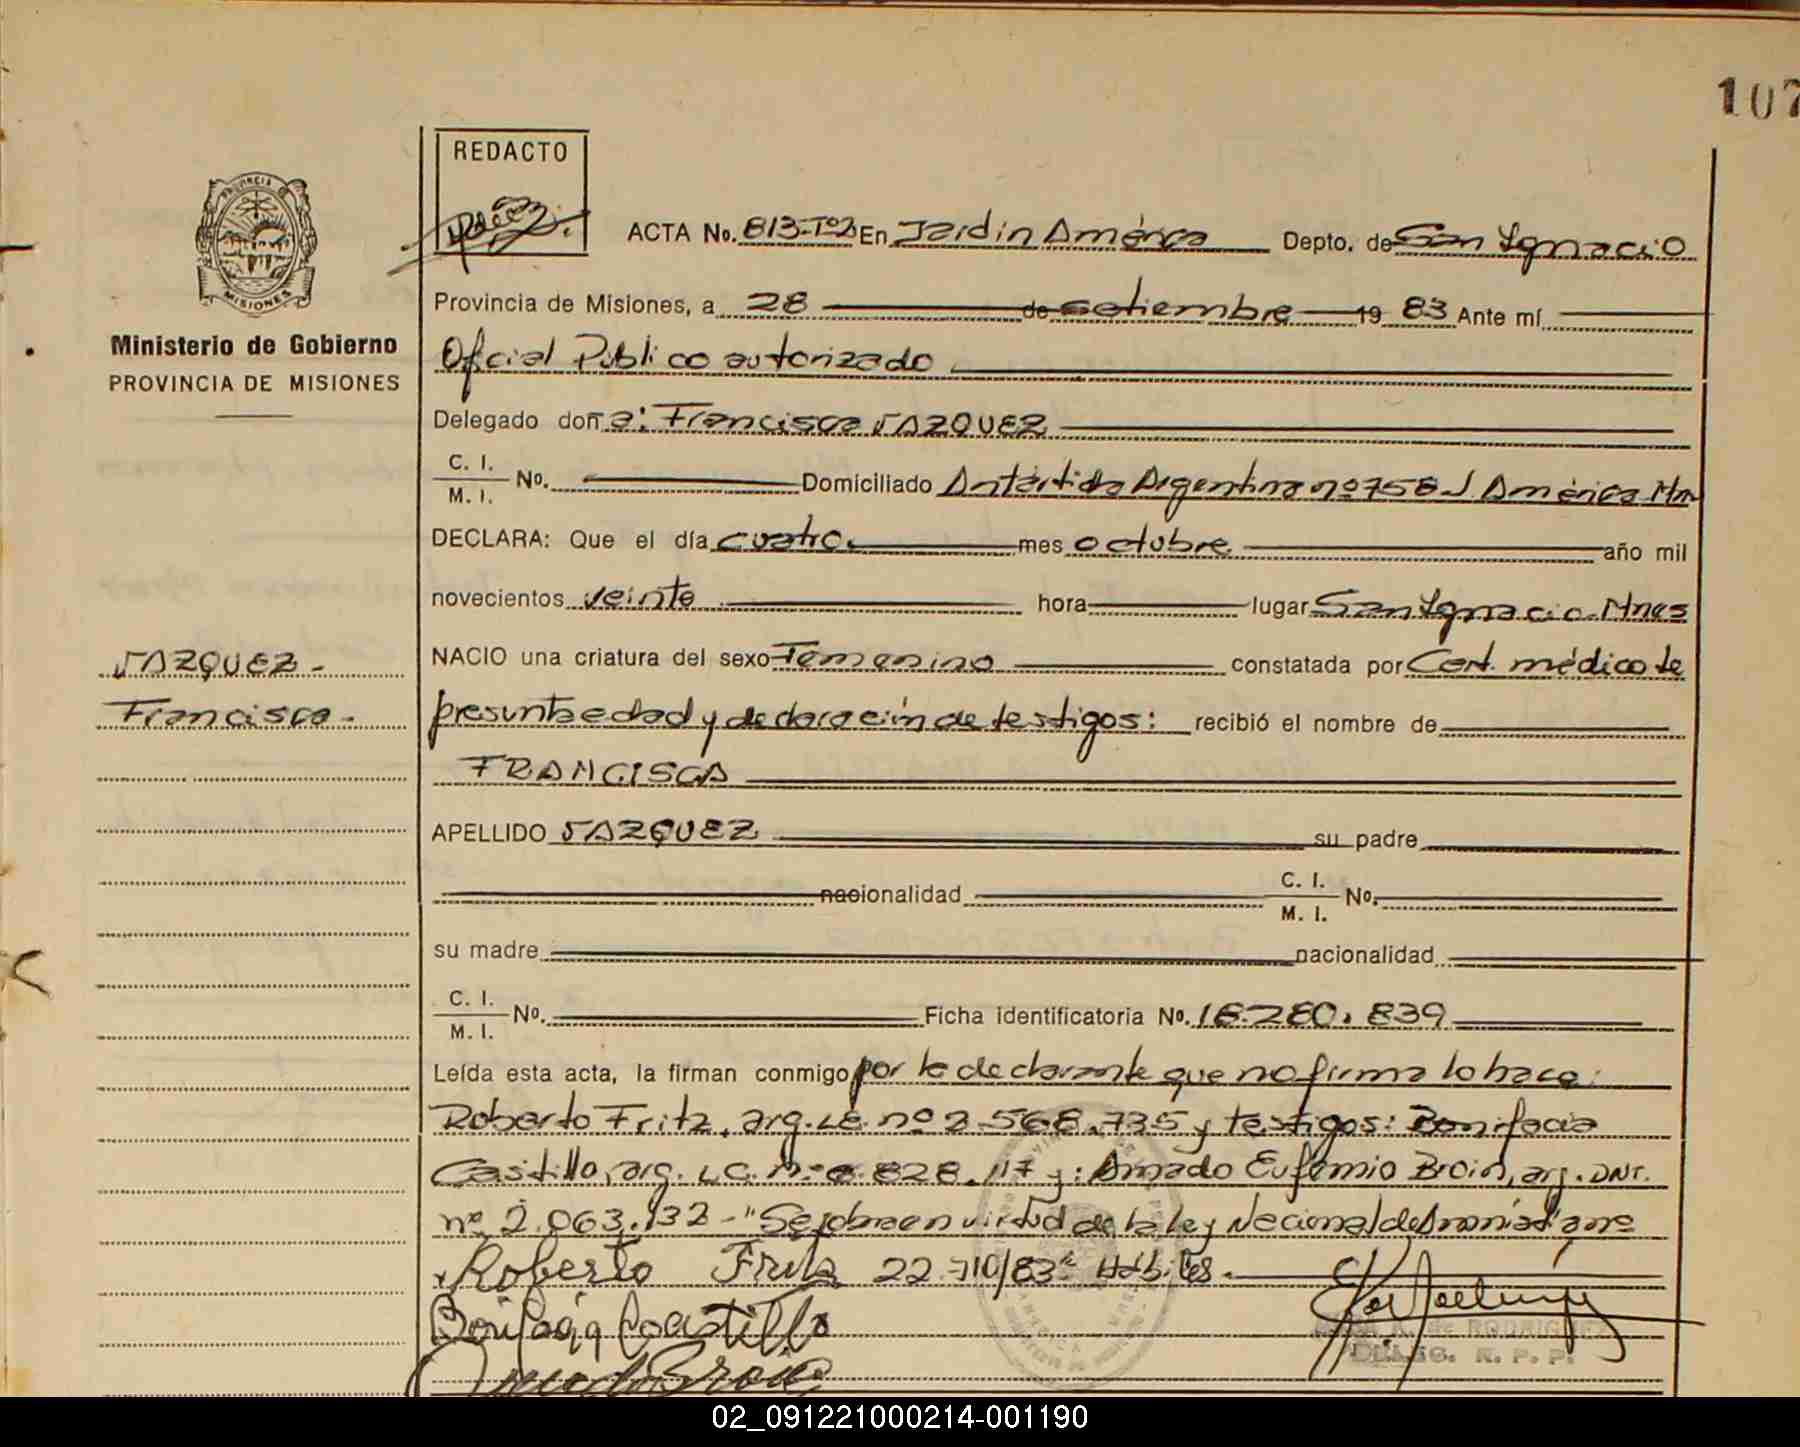 107
REDACTO
PROVINCIA DE
MISIONES
Ministerio de Gobierno
PROVINCIA DE MISIONES
ACTA No. 813-Tº2 En Jardin América Depto. de San Ignacio
Provincia de Misiones, a 28 de setiembre 19 83 Ante mí
Oficial Público autorizado
Delegado doña: Francisca VAZQUEZ
C. I.
M. I. No. Domiciliado Antártida Argentina nº 758 J. América Mnes
DECLARA: Que el día cuatro. mes octubre año mil
novecientos veinte hora lugar San Ignacio-Mnes
VAZQUEZ-
Francisca-
NACIO una criatura del sexo Femenino constatada por Cert. médico de
presunta edad y declaración de testigos: recibió el nombre de
FRANCISCA
APELLIDO VAZQUEZ su padre
nacionalidad C. I.
M. I. No.
su madre nacionalidad
C. I.
M. I. No. Ficha identificatoria No. 18.280.839
Leída esta acta, la firman conmigo por la declarante que no firma lo hace:
Roberto Fritz, arg. LE. nº 2.568.735 y testigos: Bonifacia
Castillo, arg. L.C. Nº 6.828.117 y: Amado Eufemio Broin, arg. DNI.
nº 2.063.132-"Se labra en virtud de la ley Nacional de Amnistía nº
22.710/83" Hábiles.
Roberto Fritz
Bonifacia Castillo
Amado Broin
de RODRIGUEZ
DELEG. R. P. P.
02_091221000214-001190